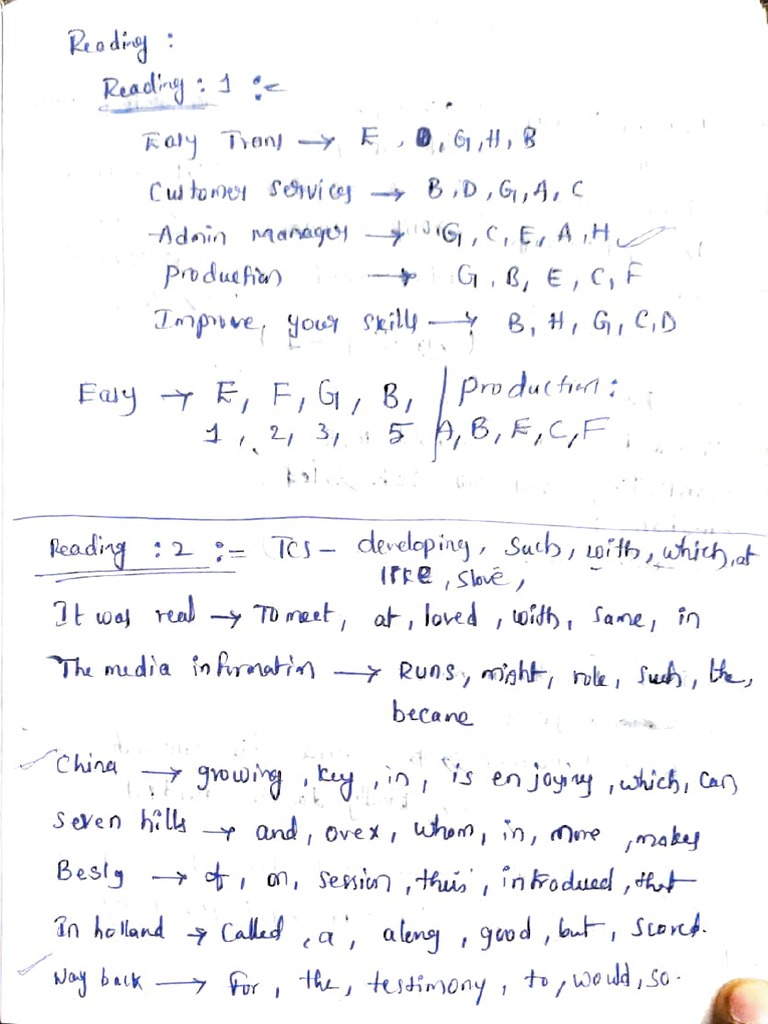 Reading :
Reading : 1 :-
Easy Trans → E, D, G, H, B
Customer services → B, D, G, A, C
Admin manager → G, C, E, A, H
Production → G, B, E, C, F
Improve, your skills → B, H, G, C, D
Easy → E, F, G, B, / production :
1, 2, 3, 5 A, B, E, C, F
Reading : 2 := TCS - developing, such, with, which, at
like, slove,
It was real → To meet, at, loved, with, same, in
The media information → Runs, might, role, such, the,
became
China → growing, key, in, is enjoying, which, can
Seven hills → and, over, whom, in, more, makes
Besly → of, on, session, this, introduced, that
In holland → called, a, along, good, but, scored.
Way back → For, the, testimony, to, would, so.